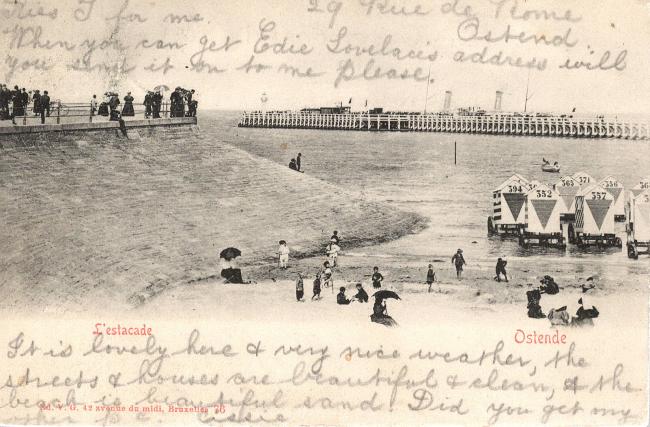 Kiss I for me. 29 Rue de Rome
Ostend
When you can get Edie Lovelacis address will
you send it on to me please.
394
352
365
371
357
356
36
3
L'estacade
Ostende
It is lovely here & very nice weather, the
streets & houses are beautiful & clean, & the
beach is beautiful sand. Did you get my
Ed. V. G. 42 avenue du midi, Bruxelles 76
other P.C. Cissie